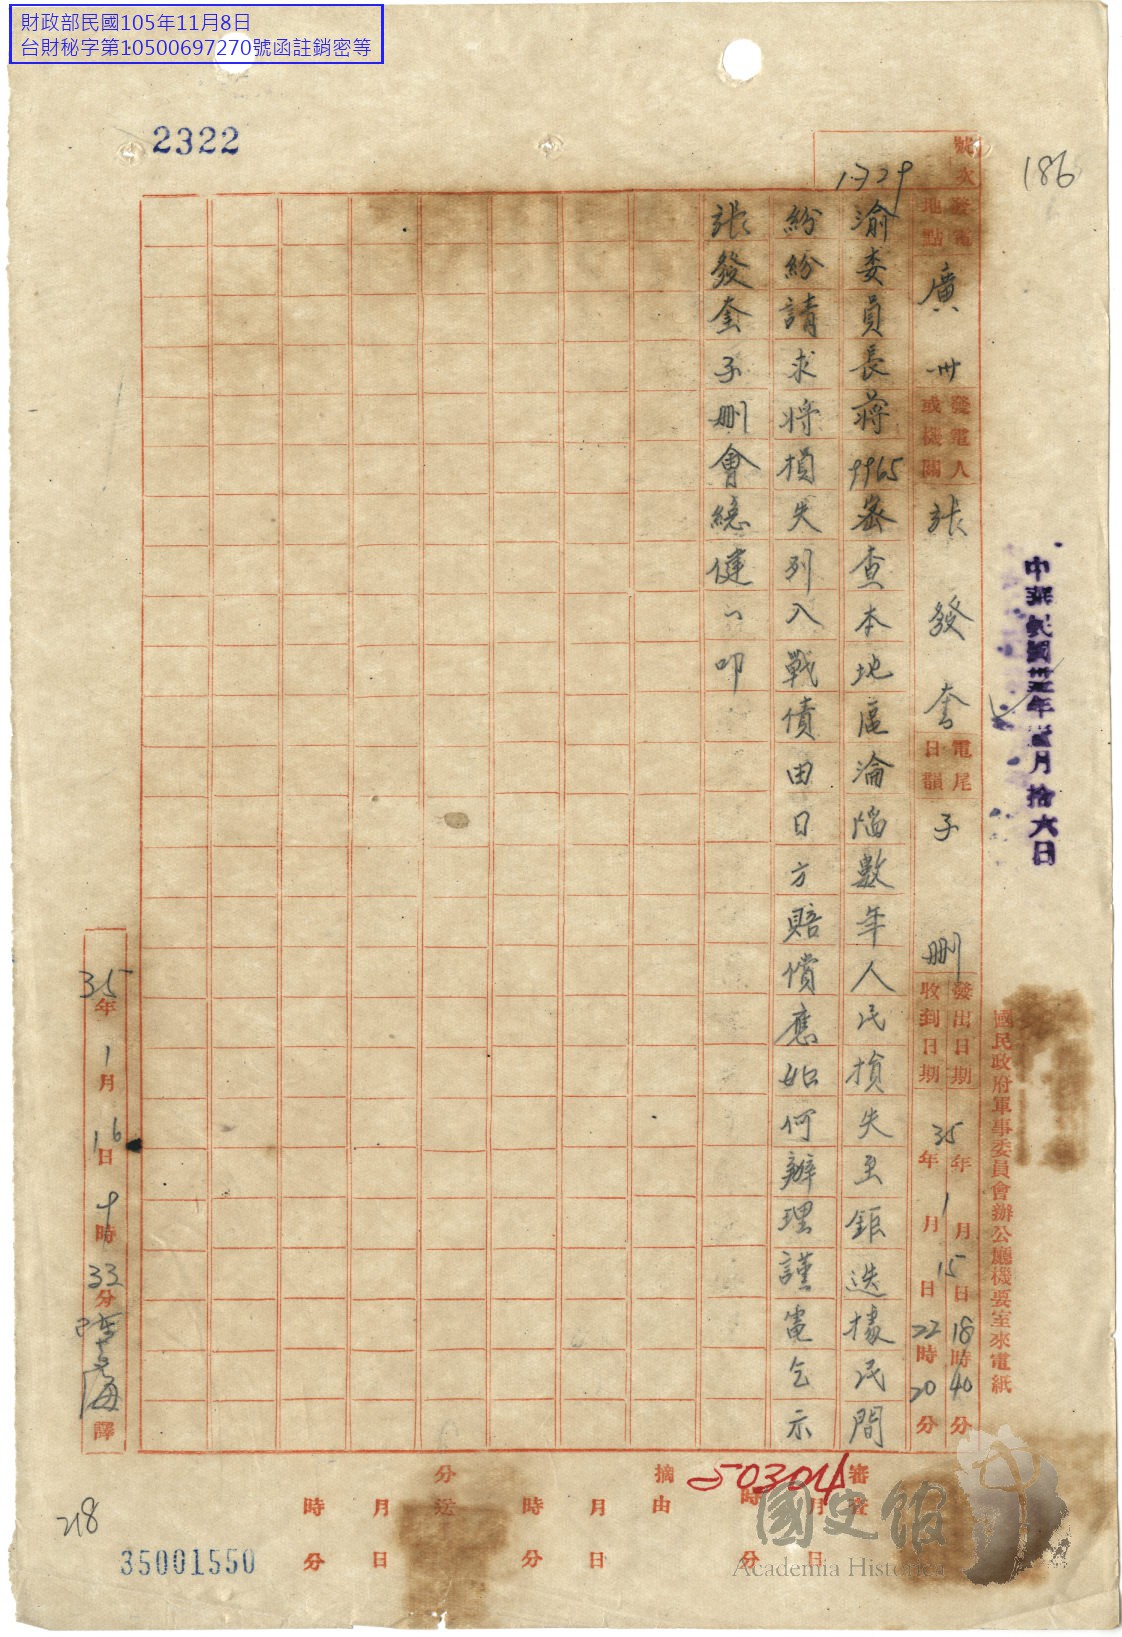 財政部民國105年11月8日
台財秘字第10500697270號函註銷密等
2322
186
中華民國卅五年壹月拾六日
國民政府軍事委員會辦公廳機要室來電紙
號次
1729
發電地點 廣州
發電人或機關 張發奎
電尾日韻 子刪
發出日期 35年1月15日18時40分
收到日期 年月日22時20分
渝委員長蔣9965密查本地區淪陷數年人民損失至鉅迭據民間
紛紛請求將損失列入戰債由日方賠償應如何辦理謹電乞示
張發奎子刪會總健叩
35年1月16日9時33分
譯
審查 月日時分
50304
摘由
月日時分
分送
月日時分
218
35001550
國史館
Academia Historica